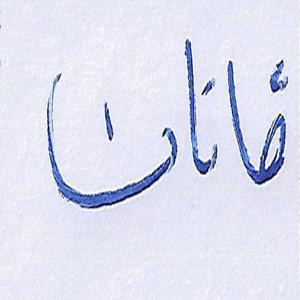 قانان